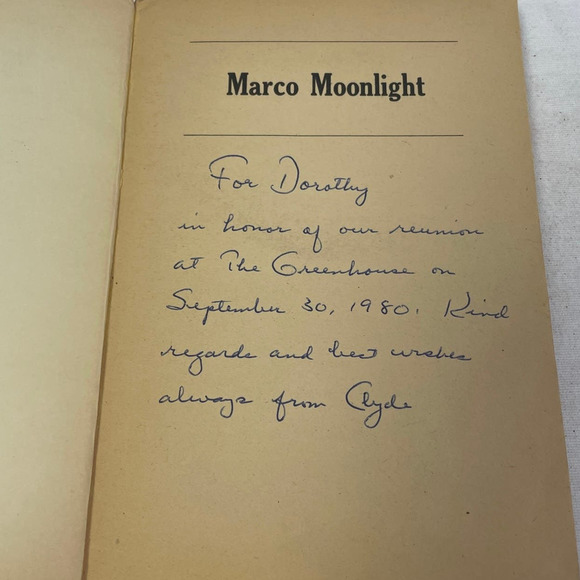 Marco Moonlight
For Dorothy
in honor of our reunion
at The Greenhouse on
September 30, 1980. Kind
regards and best wishes
always from Clyde